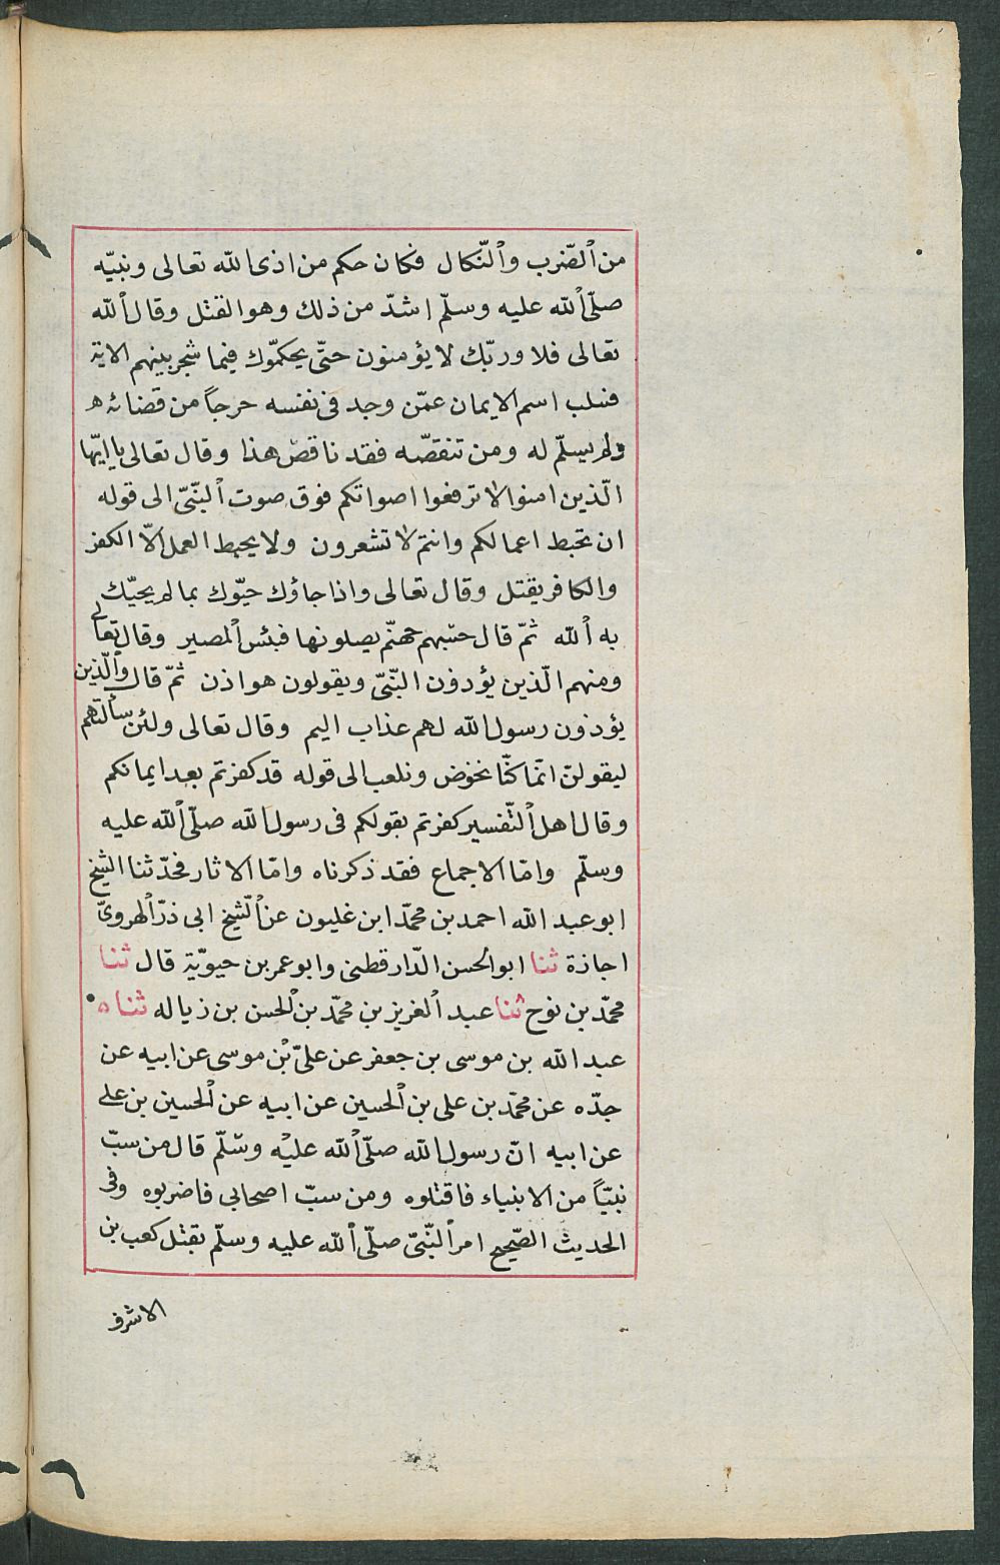 من ٱلضّرب وٱلنّكال فكان حكم من اذى الله تعالى ونبيّه
صلّى ٱلله عليه وسلّم اشدّ من ذلك وهو القتل وقال ٱلله
تعالى فلا وربّك لا يؤمنون حتّى يحكمّوك فيما شجر بينهم الاية
فسلب اسم الايمان عمّن وجد فى نفسه حرجاً من قضائه ه
ولم يسلّم له ومن تنقصّه فقد ناقض هذا وقال تعالى يا ايّها
الّذين امنوا لا ترفعوا اصواتكم فوق صوت ٱلنّبىّ الى قوله
ان تحبط اعمالكم وانتم لا تشعرون ولا يحبط العمل الّا الكفر
والكافر يقتل وقال تعالى واذا جاؤك حيّوك بما لم يحيّك
به ٱلله ثمّ قال حسبهم جهنّم يصلونها فبئس ٱلمصير وقال تعالى
ومنهم الّذين يؤذون النّبىّ ويقولون هو اذن ثمّ قال وٱلّذين
يؤذون رسول الله لهم عذاب اليم وقال تعالى ولئن سألتهم
ليقولنّ انّما كنّا نخوض ونلعب الى قوله قد كفرتم بعد ايمانكم
وقال اهل ٱلتّفسير كفرتم بقولكم فى رسول الله صلّى ٱلله عليه
وسلّم وامّا الاجماع فقد ذكرناه وامّا الاثار فحدّثنا الشيخ
ابو عبد الله احمد بن محمّد ابن غلبون عن ٱلشّيخ ابى ذرّ ٱلهروىّ
اجازة ثنا ابو الحسن الدّارقطنى وابو عمر بن حيويّة قال ثنا
محمّد بن نوح ثنا عبد ٱلعزيز بن محمّد بن ٱلحسن بن زباله ثنا ه
عبد الله بن موسى بن جعفر عن علىّ بن موسى عن ابيه عن
جدّه عن محمّد بن على بن ٱلحسين عن ابيه عن ٱلحسين بن على
عن ابيه انّ رسول الله صلّى ٱلله عليه وسّلّم قال من سبّ
نبيّاً من الانبياء فاقتلوه ومن سبّ اصحابى فاضربوه وفى
الحديث الصّحيح امر ٱلنّبىّ صلّى ٱلله عليه وسلّم بقتل كعب بن
الاشرف